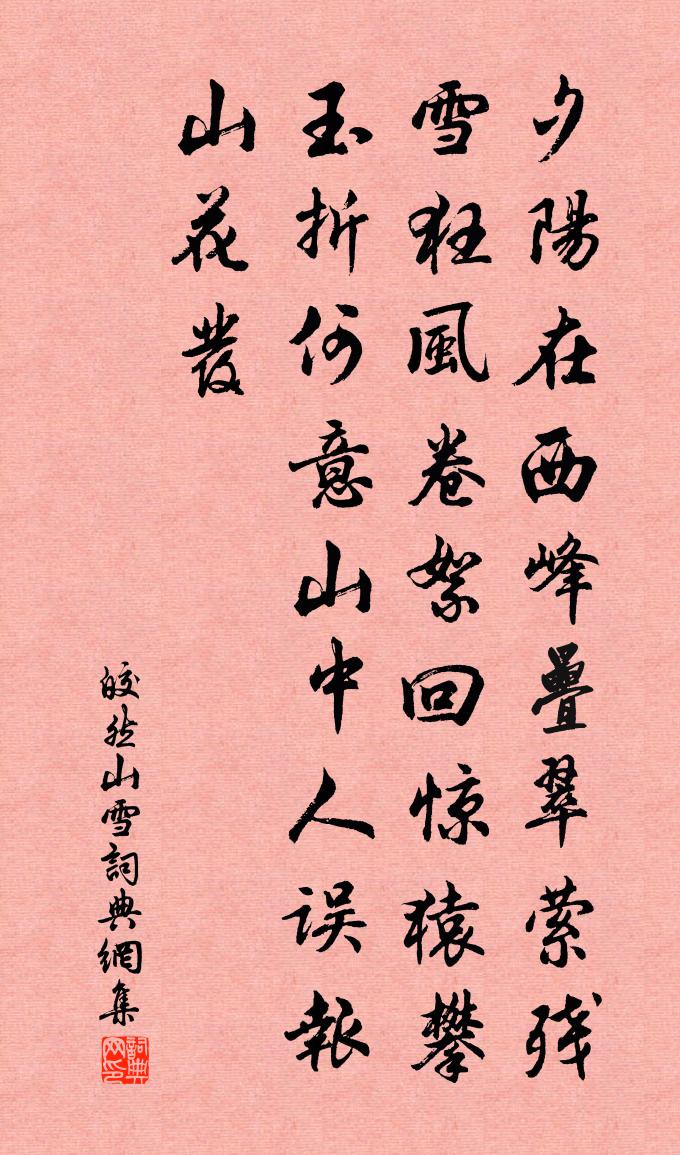 夕陽在西峰疊翠萦残
雪狂風卷絮回惊猿攀
玉折何意山中人误報
山花發
皎然山雪詞典網集
詞典网印